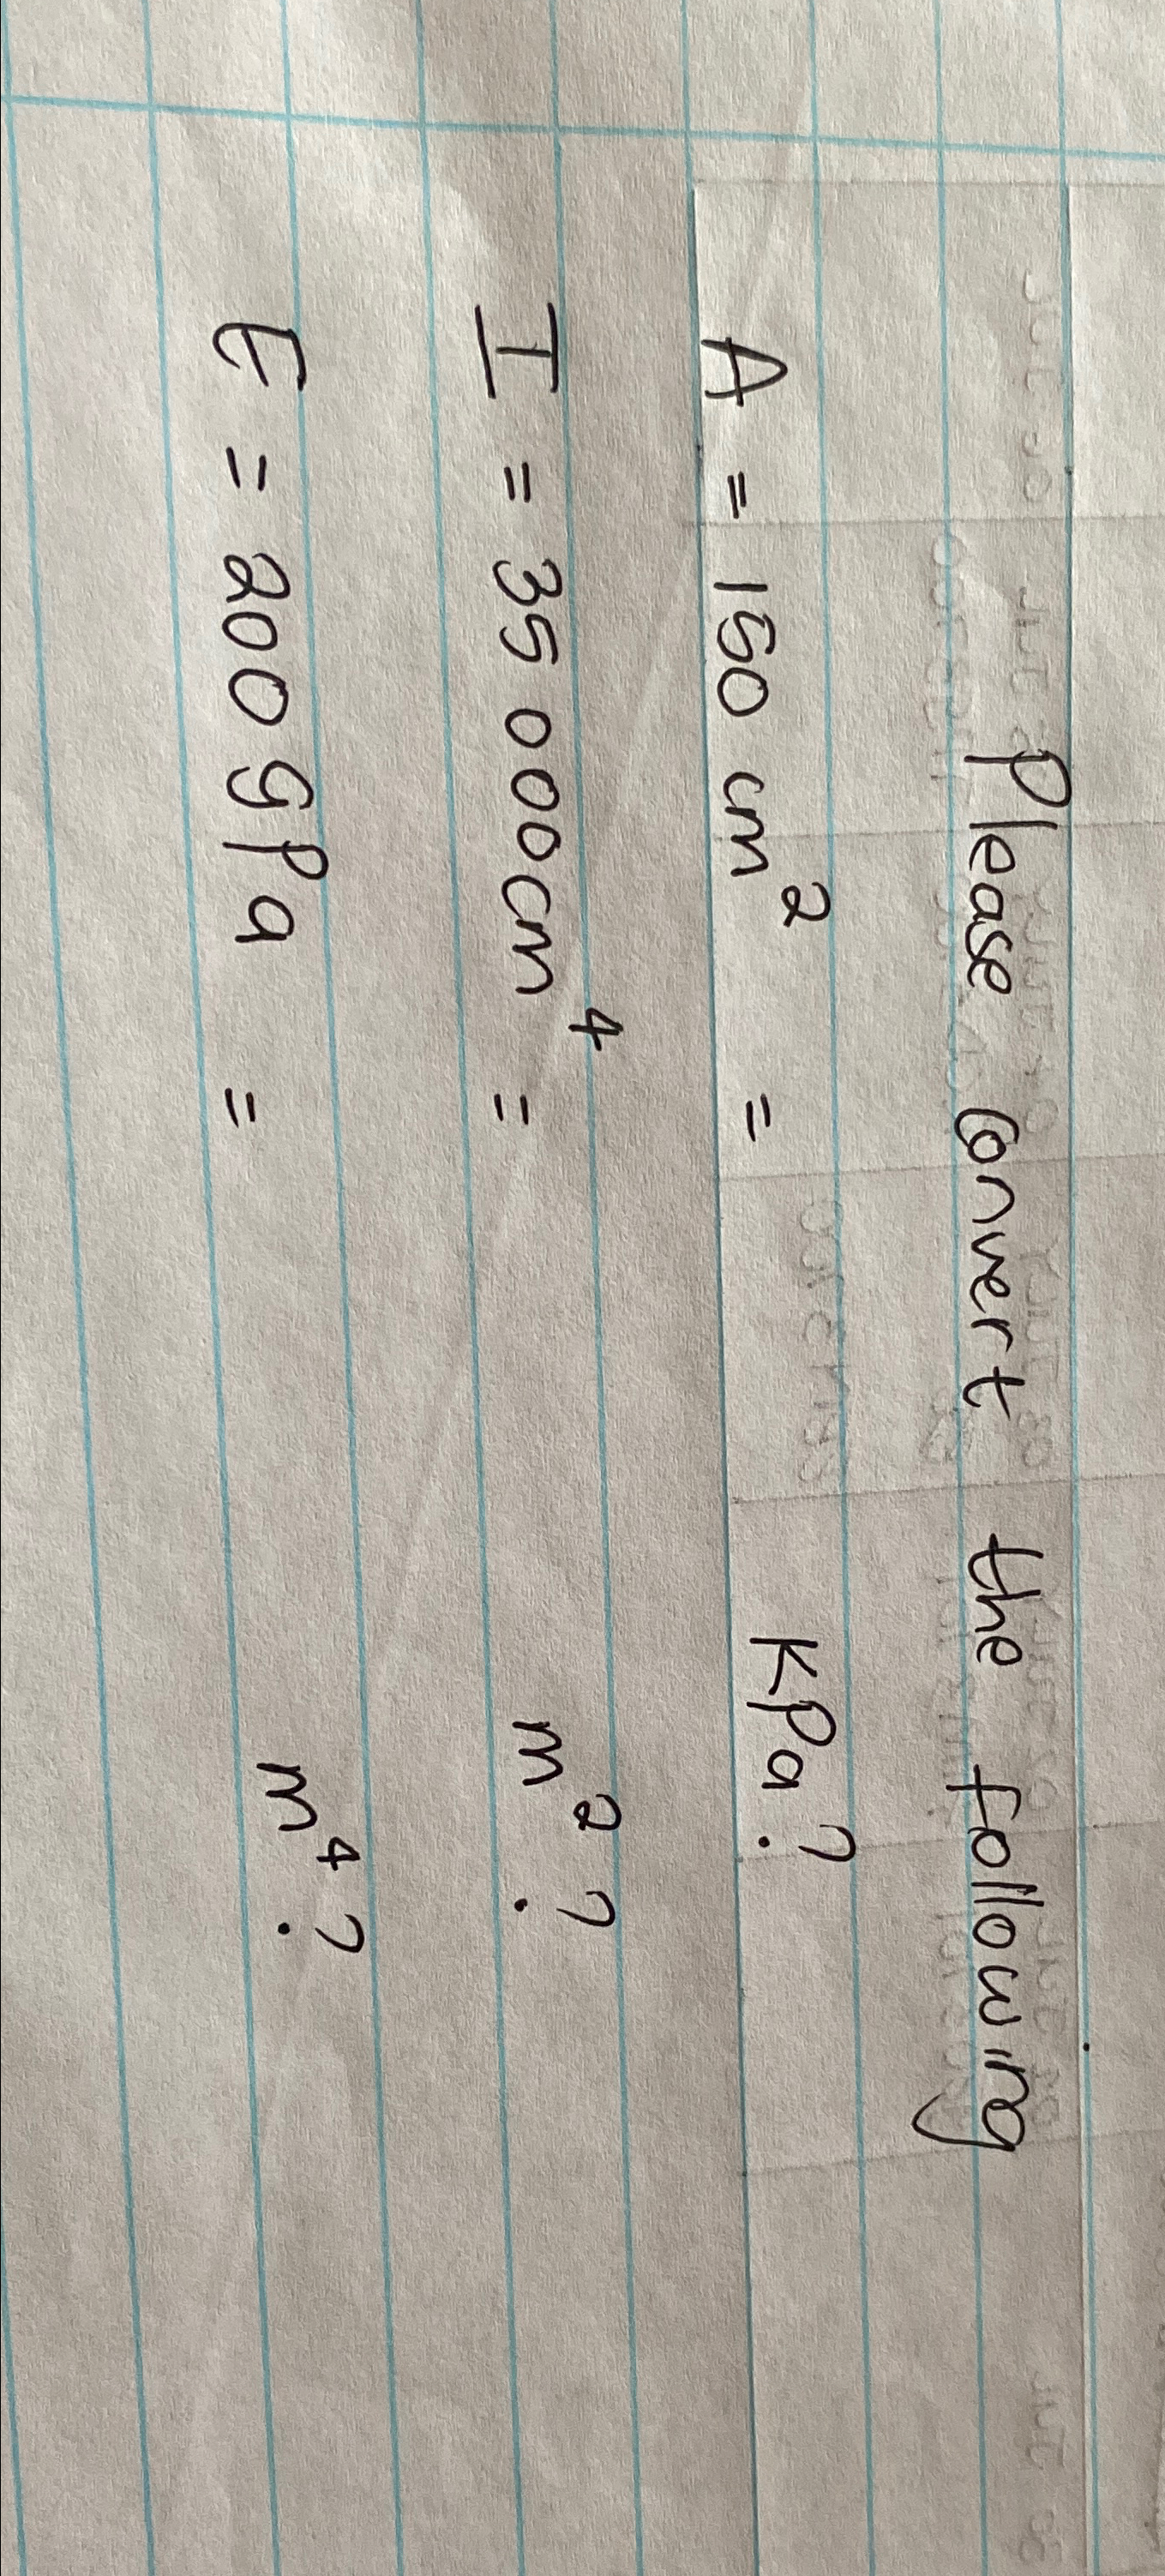 Please convert the following
A = 150 cm² = KPa?
I = 35 000cm⁴ = m²?
E = 200gPa = m⁴?